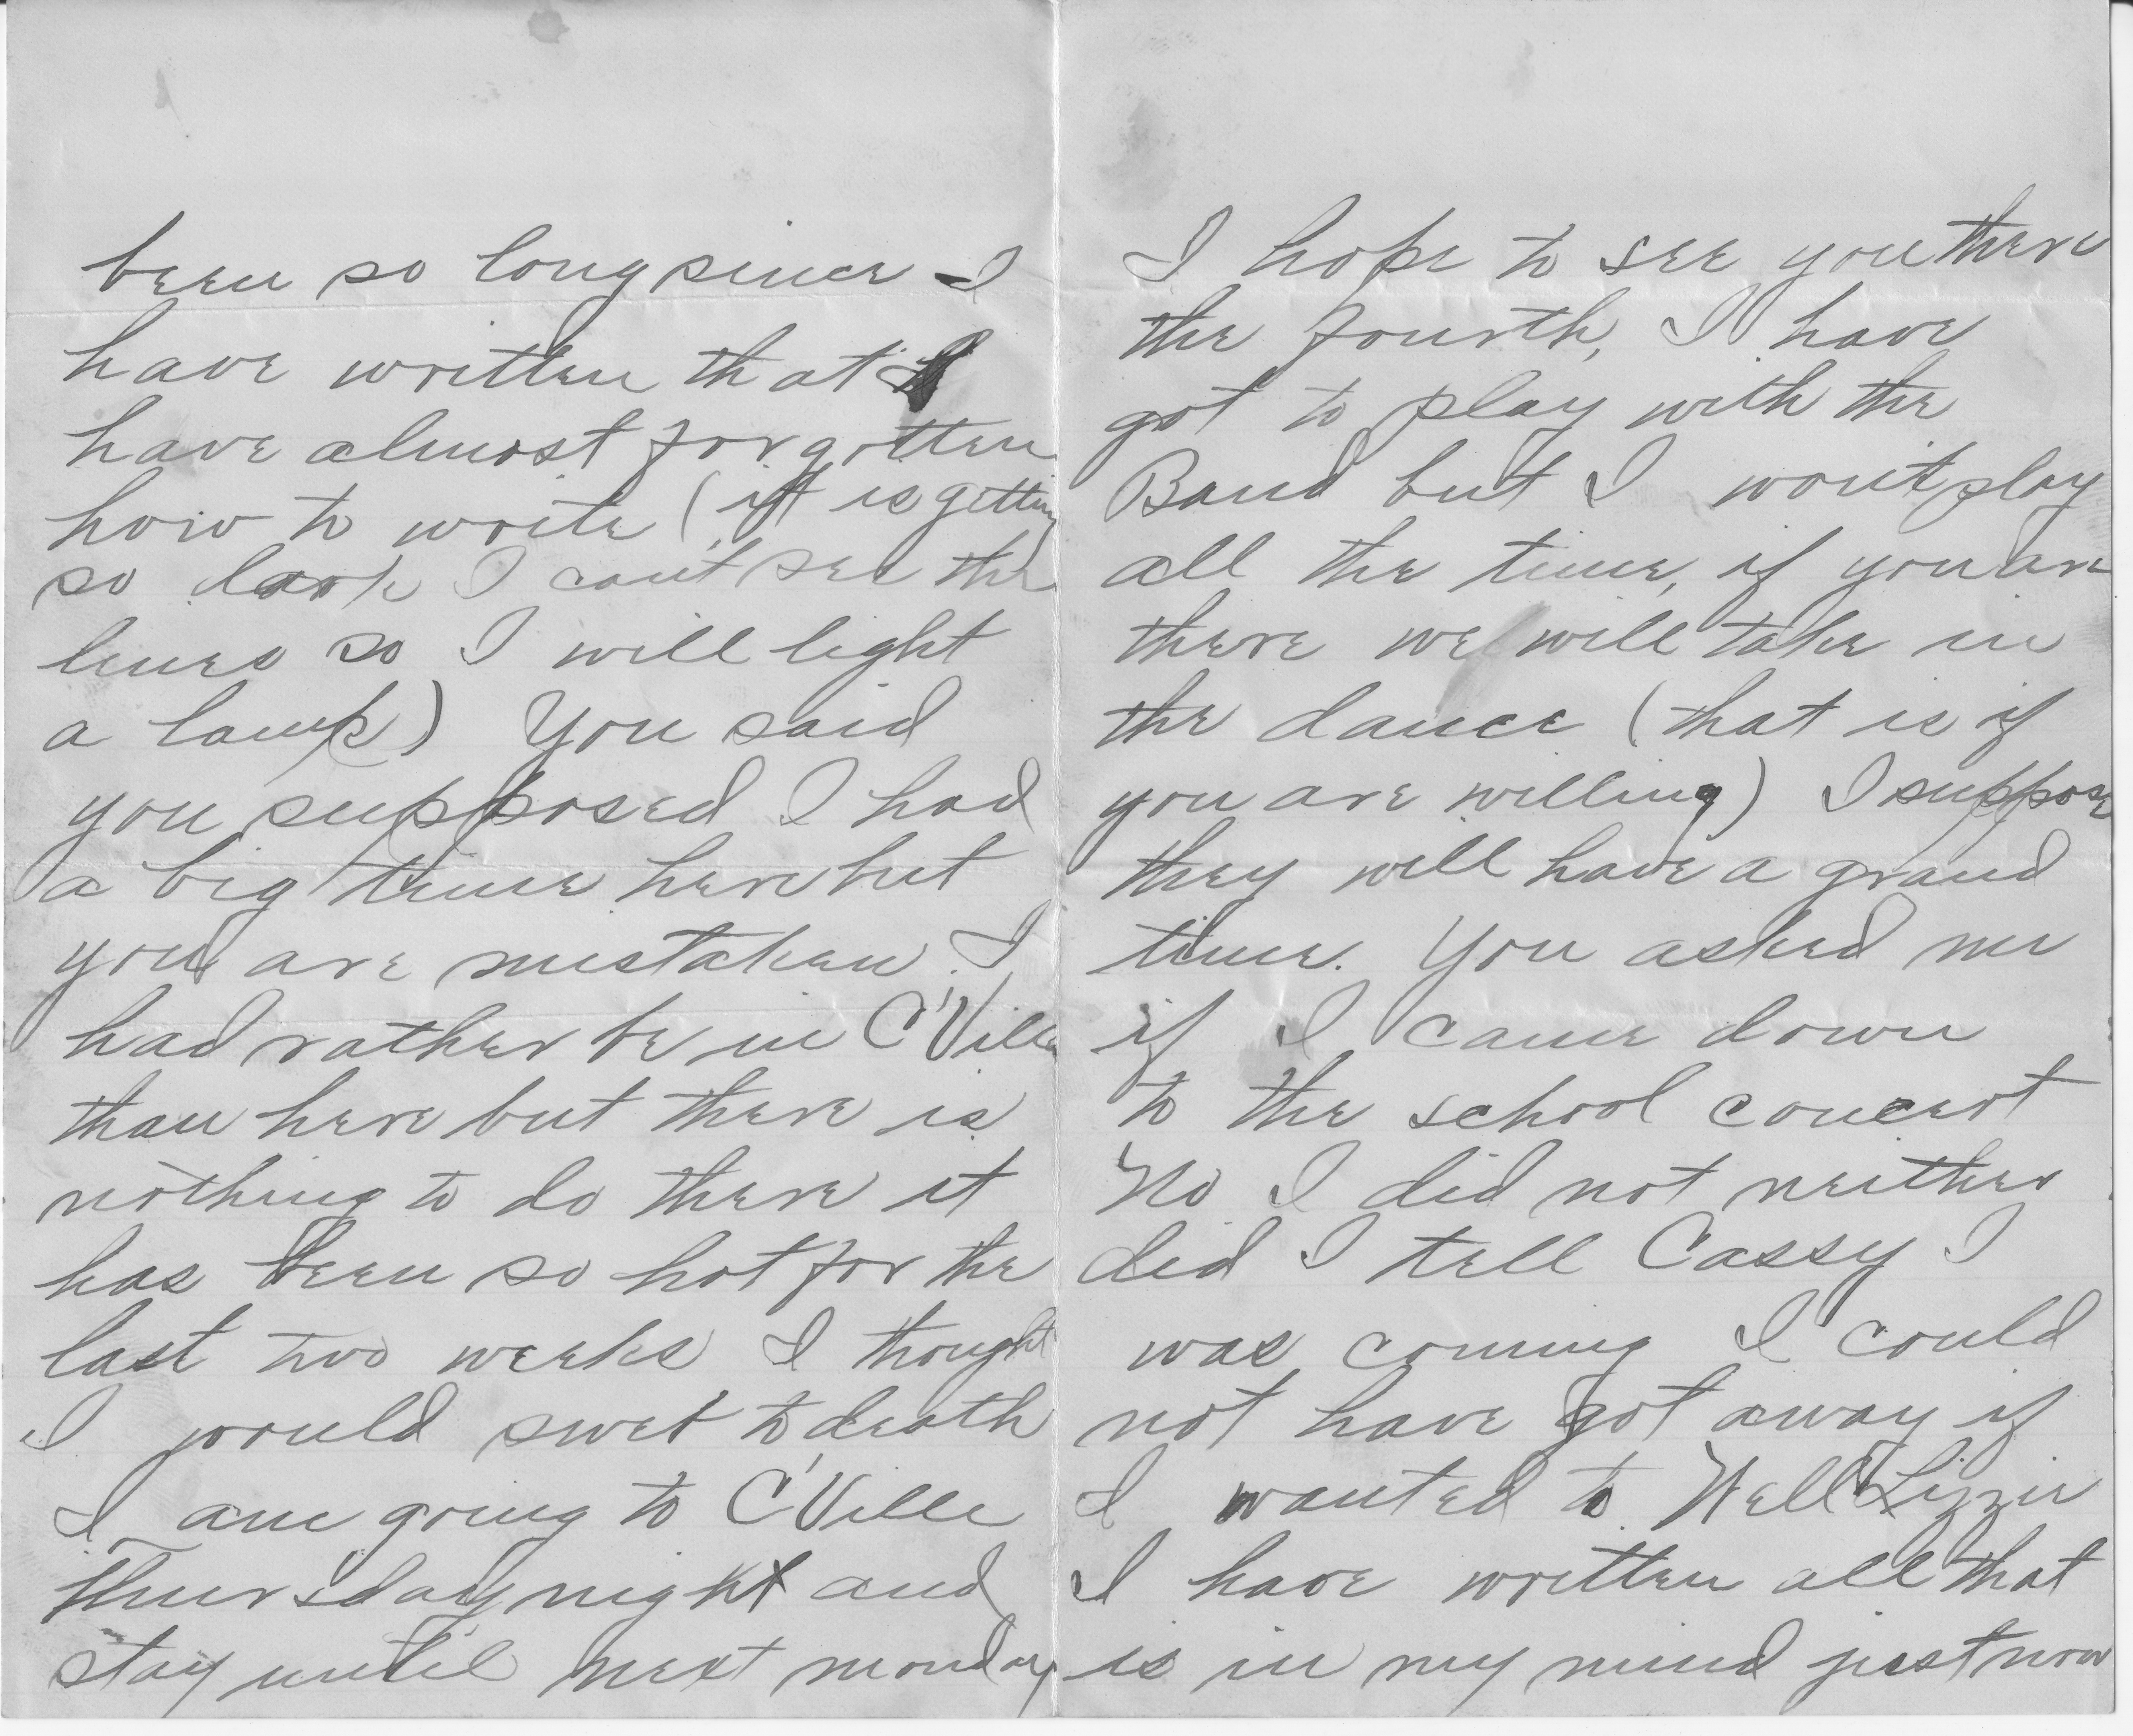 been so long since I
have written that I
have almost forgotten
how to write (it is getting
so dark I can't see the
lines so I will light
a lamp) You said
you supposed I had
a big time here but
you are mistaken. I
had rather be in C'Ville
than here but there is
nothing to do there it
has been so hot for the
last two weeks I thought
I would swet to death
I am going to C'Ville
Thursday night and
stay until next monday
I hope to see you there
the fourth, I have
got to play with the
Band but I won't play
all the time, if you are
there we will take in
the dance (that is if
you are willing) I suppose
they will have a grand
time. You asked me
if I came down
to the school concert
No I did not neither
did I tell Cassy I
was coming I could
not have got away if
I wanted to. Well Lizzie
I have written all that
is in my mind just now